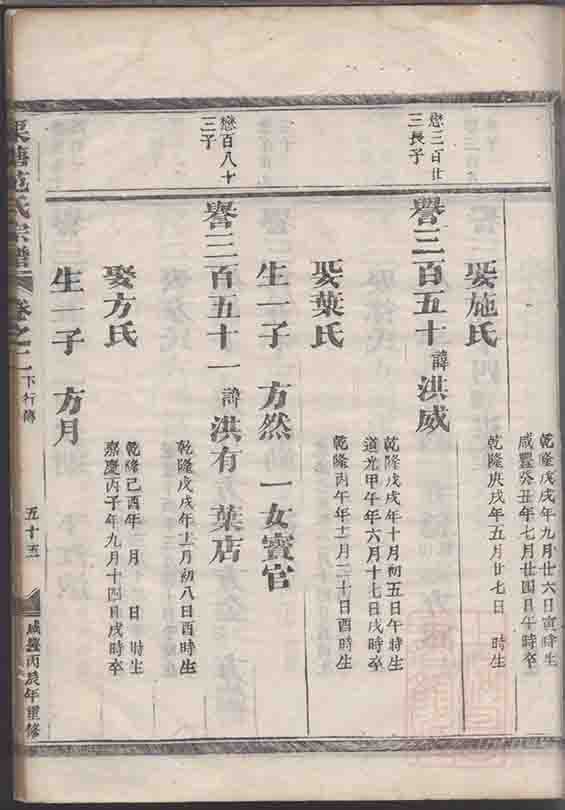 乾隆戊戌年九月廿六日寅時生
咸豐癸丑年七月廿四日午時卒
娶施氏
乾隆庚戌年五月廿七日　時生
懋三百廿
三長子
譽三百五十　諱洪威
乾隆戊戌年十月初五日午時生
道光甲午年六月十七日戌時卒
娶葉氏
乾隆丙午年十二月二十日酉時生
生一子　方然　一女寶官
懋百八十
三子
譽三百五十一　諱洪有　葉店
乾隆戊戌年十二月初八日酉時生
娶方氏
乾隆己酉年　月　日　時生
嘉慶丙子年九月十四日戌時卒
生一子　方月
范氏宗譜　卷之二　下行傳　五十五　咸豐丙辰年重修